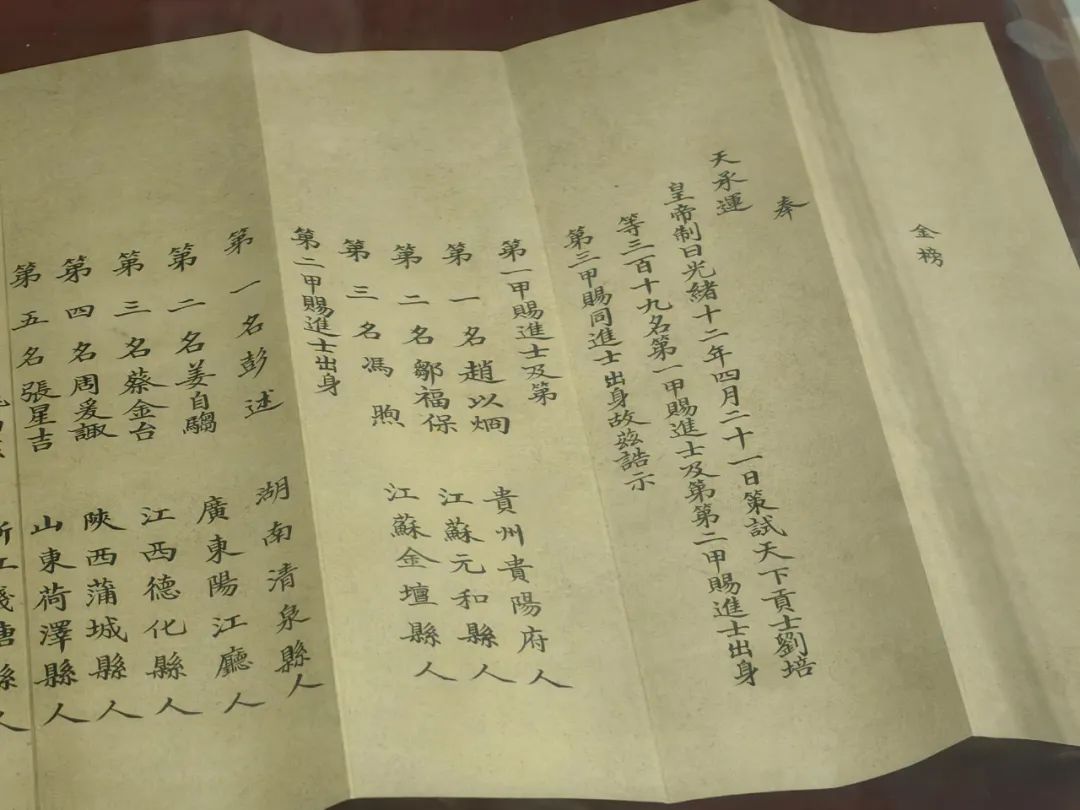 金榜
奉
天承運
皇帝制曰光緒十二年四月二十一日策試天下貢士劉培
等三百十九名第一甲賜進士及第第二甲賜進士出身
第三甲賜同進士出身故茲誥示
第一甲賜進士及第
第一名趙以烱 貴州貴陽府人
第二名鄒福保 江蘇元和縣人
第三名馮煦 江蘇金壇縣人
第二甲賜進士出身
第一名彭述 湖南清泉縣人
第二名姜自騶 廣東陽江廳人
第三名蔡金台 江西德化縣人
第四名周爰諏 陝西蒲城縣人
第五名張星吉 山東荷澤縣人
縣人